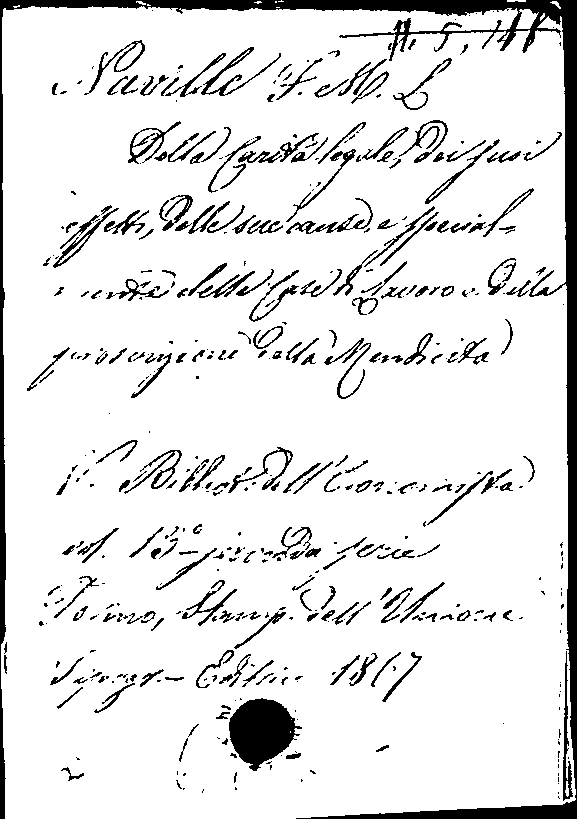 H. 5, 148
Naville F. M. L
Della Carità legale, dei suoi
effetti, delle sue cause, e special-
mente delle Case di Lavoro e della
proscrizione della Mendicità
V. Bibliot. dell'Economista
vol. 13º seconda serie
Torino, Stamp. dell'Unione
Tipogr. - Editrice 1867